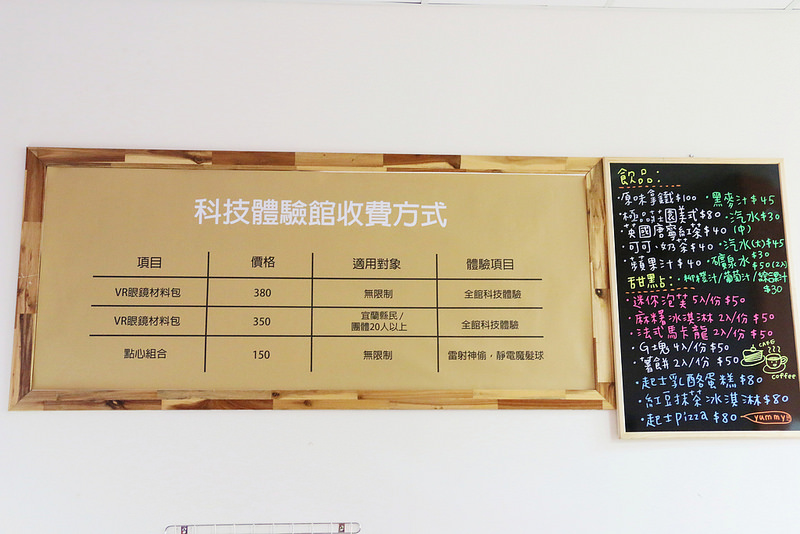 科技體驗館收費方式
項目 價格 適用對象 體驗項目
VR眼鏡材料包 380 無限制 全館科技體驗
VR眼鏡材料包 350 宜蘭縣民/
團體20人以上 全館科技體驗
點心組合 150 無限制 雷射神偷,靜電魔髮球
飲品:
·原味拿鐵$100 ·黑麥汁$45
·極品莊園美式$80 ·汽水$30
·英國唐寧紅茶$40 (中)
·可可·奶茶$40 ·汽水(大)$45
·蘋果汁$40 ·礦泉水$30
$50(2入)
甜點: ·柳橙汁/葡萄汁/綜合果汁
$30
·迷你泡芙5入/份$50
·麻糬冰淇淋2入/份$50
·法式馬卡龍2入/份$50
·G塊4入/份$50
·薯餅2入/份$50
CAFE
coffee
·起士乳酪蛋糕$80
·紅豆抹茶冰淇淋$80
·起士pizza $80
yummy!